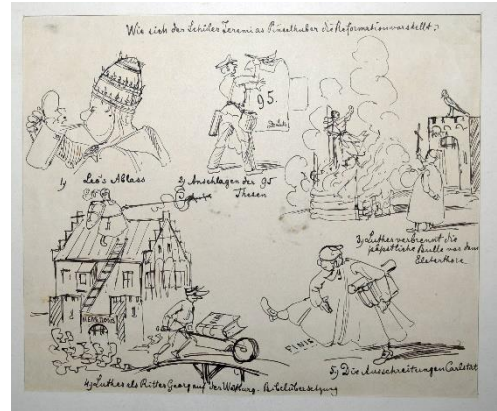 Wie sich der Schüler Jeremias Pinselhuber die Reformation vorstellt:
1) Leo's Ablass
95.
2) Anschlagen der 95
Thesen
3) Luther verbrennt die
päpstliche Bulle vor dem
Elsterthore
4) Luther als Ritter Georg auf der Wartburg - Bibelübersetzung
FINIS
5) Die Ausschreitungen Carlstat